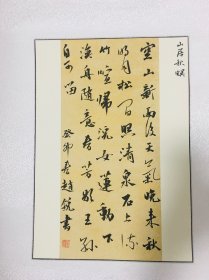 山居秋暝
空山新雨後天氣晚来秋
明月松间照清泉石上流
竹喧歸浣女蓮動下
渔舟随意春芳歇王孫
自可留
癸卯春趙書